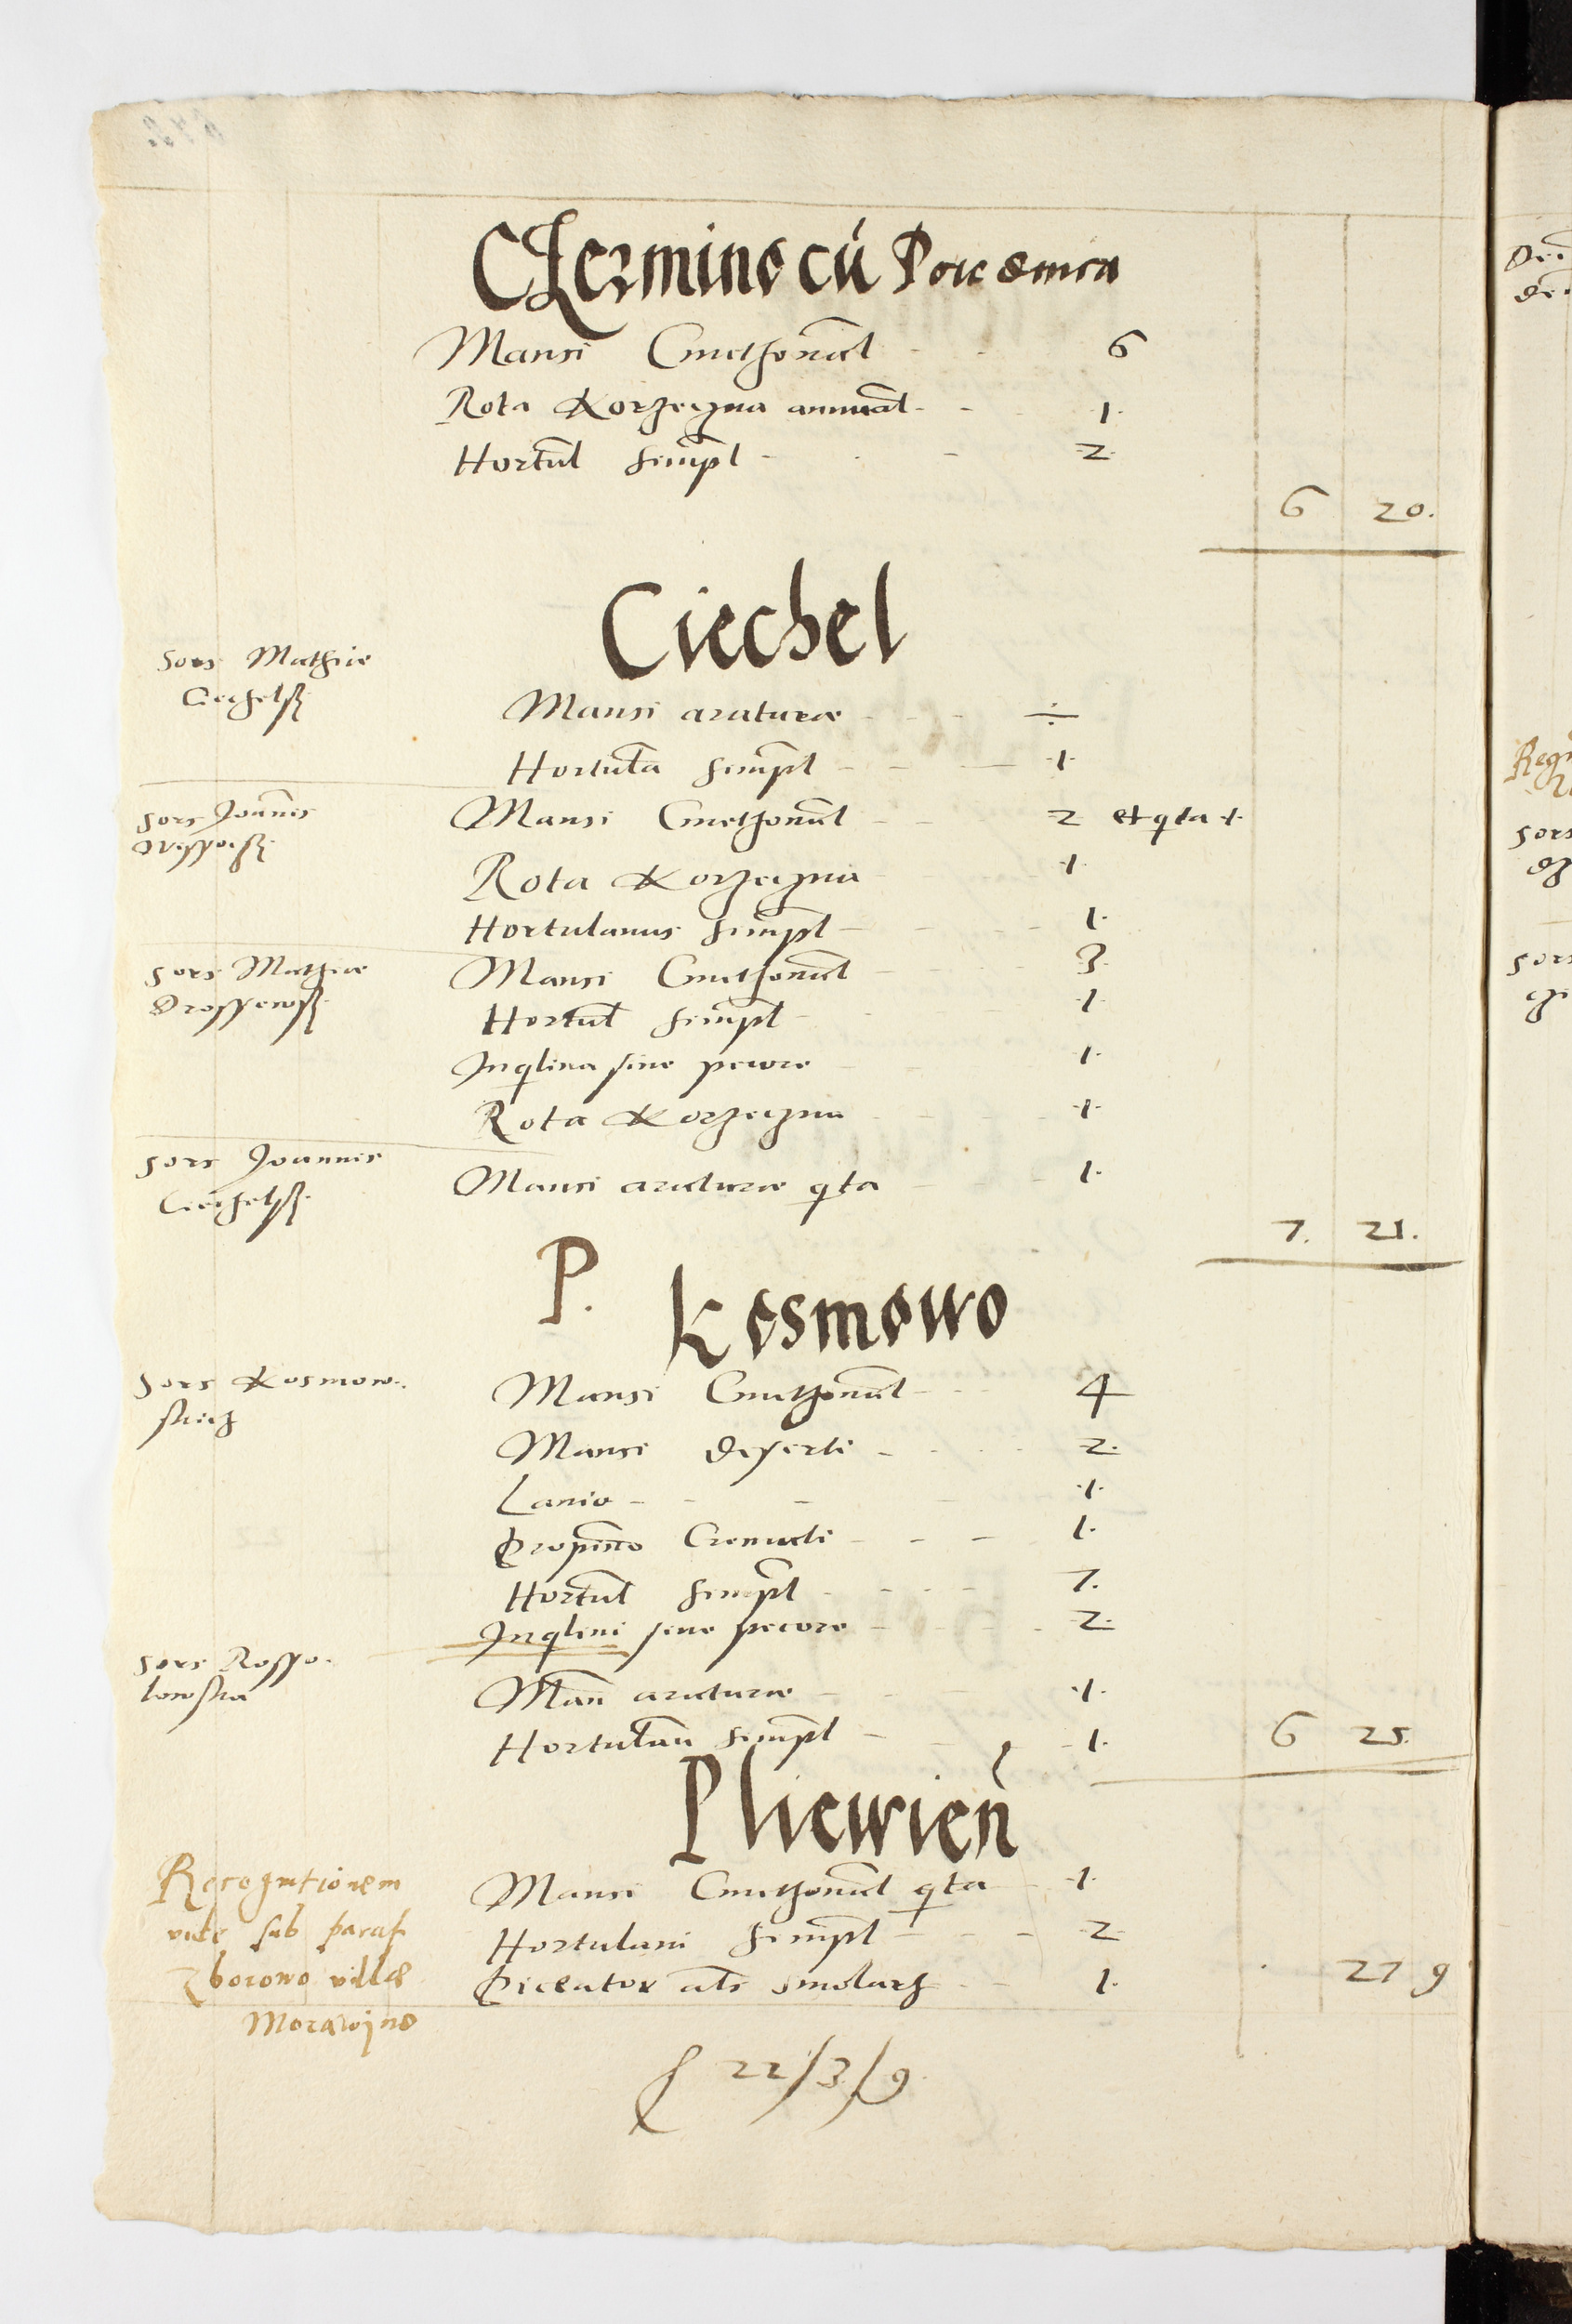 Czermino cū
Mansi Cmethonal 6
Rota Korzeczna annual 1.
Hortul simpl 2
6 20.
Ciechel
Sors Mathie
Ciechelsk
Mansi araturæ ÷
Hortula simpl 1
Sors Joannis
Mansi Cmethonal 2 et qta 1
Rota Korzeczna 1
Hortulanus simpl 1.
Sors Mathiæ
Drossewsk
Mansi Cmethonal 3
Hortul simpl 1
Inqlina sine pecore 1.
Rota Korzeczna 1
Sors Joannis
Ciechelsk
Mansi araturæ qta 1.
7. 21.
P. Kosmowo
Sors Kosmow
skich
Mansi Cmethonal 4
Mansi deserti 2.
Lanio 1.
Propino Cremati 1.
Hortul simpl 7.
Inqlini sine pecore 2.
Sors Rosso
lowska
Man araturæ 1.
Hortulan simpl 1. 6 25.
Pliewień
Recognitionem
vide sub paraf
Zborowo villæ
Morawijno
Mansi Cmethonal qta 1
Hortulani simpl 2
Piceator als smolarz 1. 27 9
22/3/9